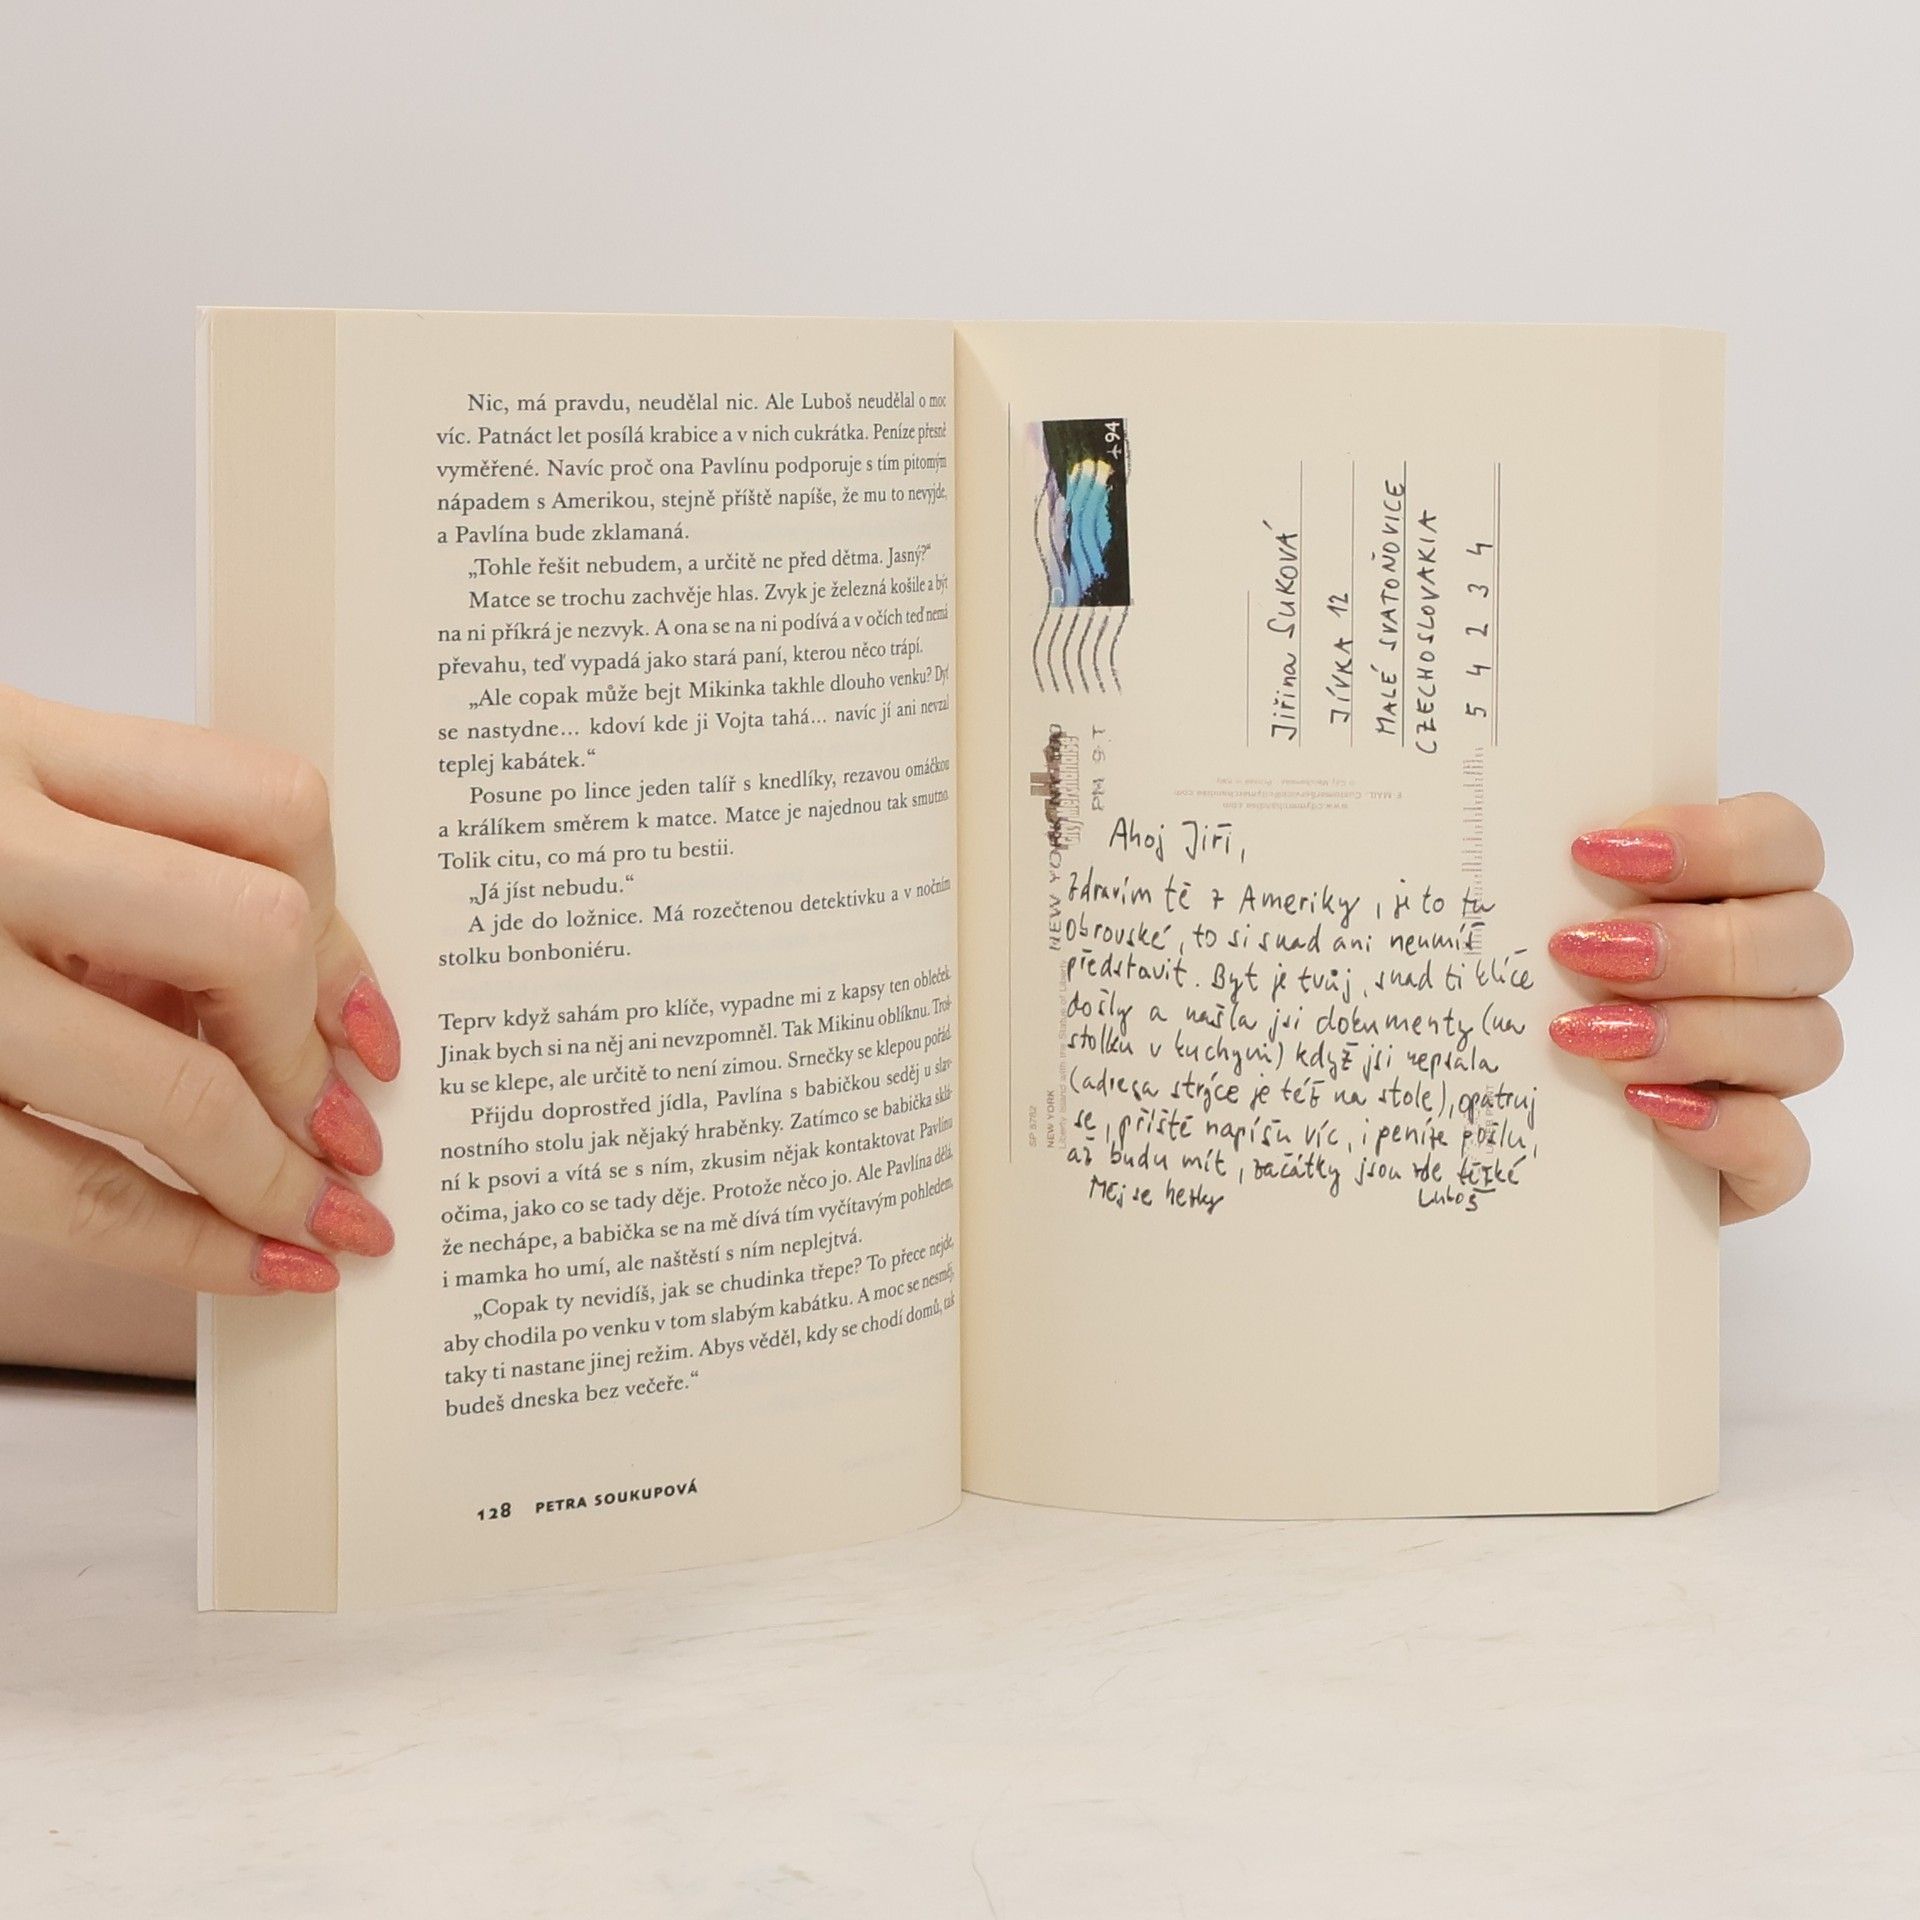 Nic, má pravdu, neudělal nic. Ale Luboš neudělal o moc
víc. Patnáct let posílá krabice a v nich cukrátka. Peníze přesně
vyměřené. Navíc proč ona Pavlínu podporuje s tím pitomým
nápadem s Amerikou, stejně příště napíše, že mu to nevyjde,
a Pavlína bude zklamaná.
„Tohle řešit nebudem, a určitě ne před dětma. Jasný?“
Matce se trochu zachvěje hlas. Zvyk je železná košile a být
na ni příkrá je nezvyk. A ona se na ni podívá a v očích teď nemá
převahu, teď vypadá jako stará paní, kterou něco trápí.
„Ale copak může bejt Mikinka takhle dlouho venku? Dyť
se nastydne... kdoví kde ji Vojta tahá... navíc jí ani nevzal
teplej kabátek.“
Posune po lince jeden talíř s knedlíky, rezavou omáčkou
a králíkem směrem k matce. Matce je najednou tak smutno.
Tolik citu, co má pro tu bestii.
„Já jíst nebudu.“
A jde do ložnice. Má rozečtenou detektivku a v nočním
stolku bonboniéru.
Teprv když sahám pro klíče, vypadne mi z kapsy ten obleček.
Jinak bych si na něj ani nevzpomněl. Tak Mikinu oblíknu. Troš-
ku se klepe, ale určitě to není zimou. Srnečky se klepou pořád.
Přijdu doprostřed jídla, Pavlína s babičkou seděj u slav-
nostního stolu jak nějaký hraběnky. Zatímco se babička sklá-
ní k psovi a vítá se s ním, zkusim nějak kontaktovat Pavlínu
očima, jako co se tady děje. Protože něco jo. Ale Pavlína dělá,
že nechápe, a babička se na mě dívá tím vyčítavým pohledem,
i mamka ho umí, ale naštěstí s ním neplejtvá.
„Copak ty nevidíš, jak se chudinka třepe? To přece nejde,
aby chodila po venku v tom slabým kabátku. A moc se nesměj,
taky ti nastane jinej režim. Abys věděl, kdy se chodí domů, tak
budeš dneska bez večeře.“
128 PETRA SOUKUPOVÁ
94
Jiřina SUKOVÁ
JÍVKA 12
MALÉ SVATOŇOVICE
CZECHOSLOVAKIA
5 4 2 3 4
www.citymerchandise.com
NEW YORK
PM
SP 5782
NEW YORK
Ahoj Jiří,
Zdravím tě z Ameriky, je to tu
obrovské, to si snad ani neumíš
představit. Byt je tvůj, snad ti klíče
došly a našla jsi dokumenty (na
stolku v kuchyni) když jsi nepsala
(adresa strýce je též na stole), opatruj
se, příště napíšu víc, i peníze pošlu,
až budu mít, začátky jsou zde těžké
Měj se hezky Luboš